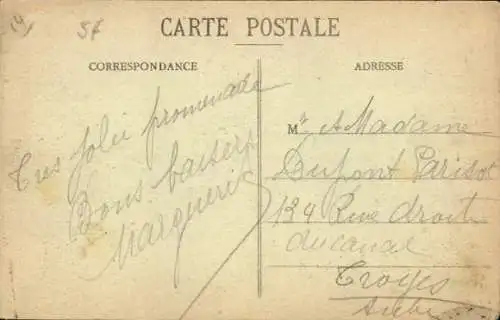 14
5f
CARTE POSTALE
CORRESPONDANCE
ADRESSE
Très jolie promenade
Bons baisers
Marguerite
M^r A Madame
Dupont Parisot
134 Rue droit
du canal
Troyes
Aube